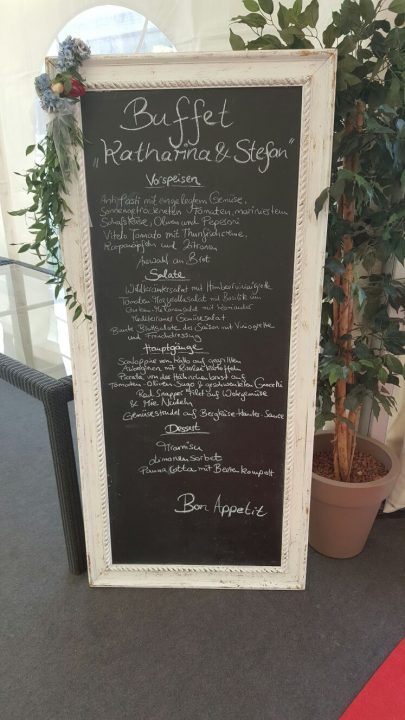 Buffet
„Katharina & Stefan"
Vorspeisen
Antipasti mit eingelegtem Gemüse,
Sonnengetrockneten Tomaten, mariniertem
Schafskäse, Oliven und Peperoni
Vitello Tonnato mit Thunfischcreme,
Kapernäpfeln und Zitronen
Auswahl an Brot
Salate
Wildkräutersalat mit Himbeervinaigrette
Tomaten-Mozzarellasalat mit Basilikum
Gurken-Melonensalat mit Koriander
Mediterraner Gemüsesalat
Bunte Blattsalate der Saison mit Vinaigrette
und Frenchdressing
Hauptgänge
Scaloppine vom Kalb auf gegrillten
Auberginen mit Kartoffeln
Piccata von der Hähnchenbrust auf
Tomaten-Oliven Sugo & geschwenkten Gnocchi
Red Snapper Filet auf Wokgemüse
& Mie Nudeln
Gemüsestrudel auf Bergkäse-Kräuter-Sauce
Dessert
Tiramisu
Limonensorbet
Panna Cotta mit Beerenkompott
Bon Appetit